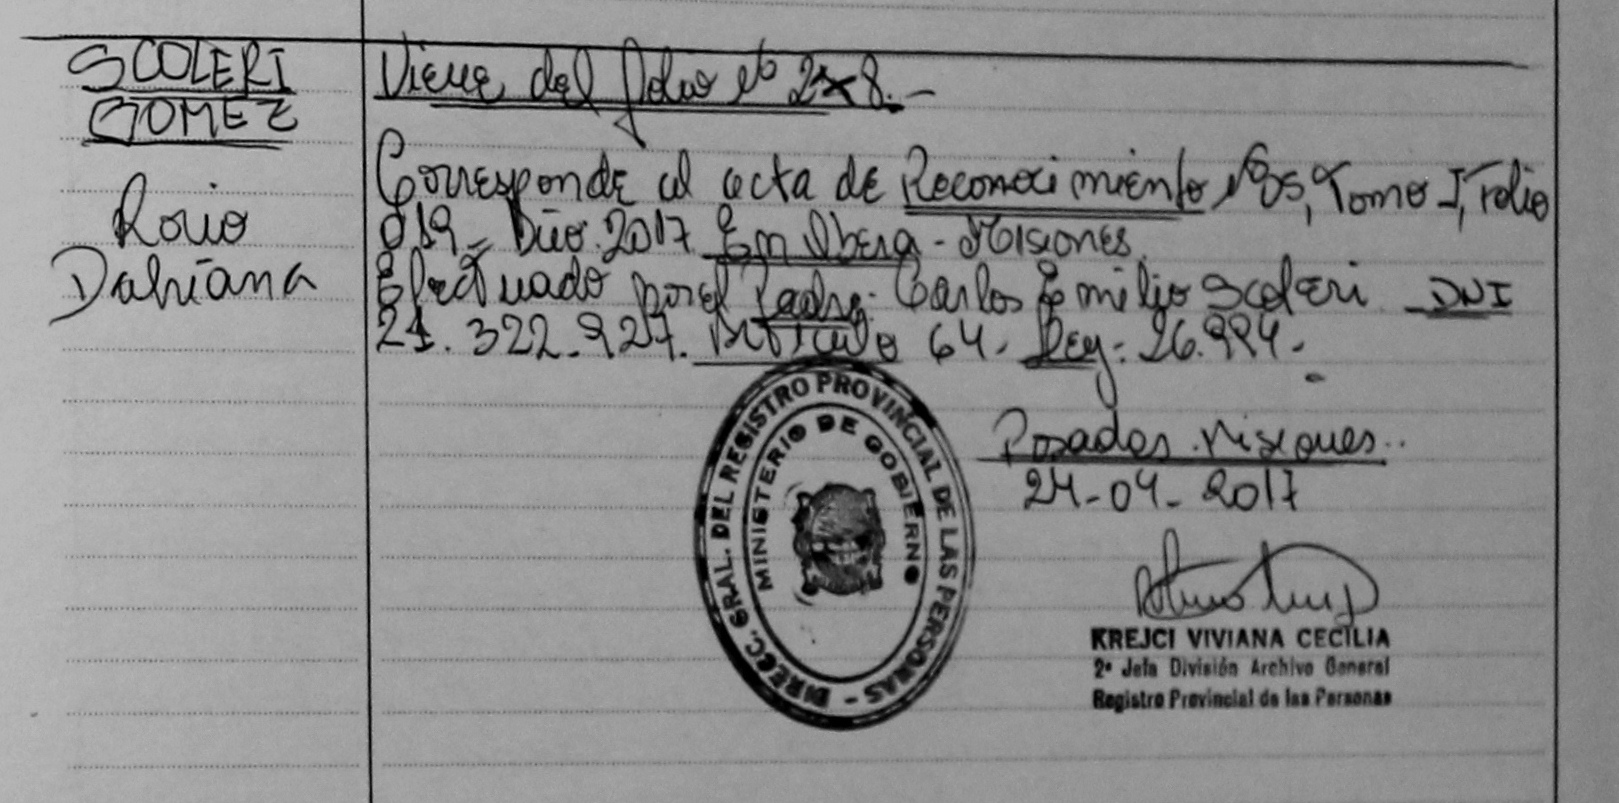 SCOLERI
GOMEZ
Rocio
Dahiana
Viene del folio Nº 278.-
Corresponde al acta de Reconocimiento Nº 05, Tomo I, Folio
019 - Año 2017 En Obera - Misiones
Efectuado por el Padre: Carlos Emilio Scoleri DNI
21.322.927. Articulo 64. Ley: 26.994.-
DIRECC. GRAL. DEL REGISTRO PROVINCIAL DE LAS PERSONAS -
MINISTERIO DE GOBIERNO
Posadas. Misiones..
24-04-2017
KREJCI VIVIANA CECILIA
2º Jefa División Archivo General
Registro Provincial de las Personas